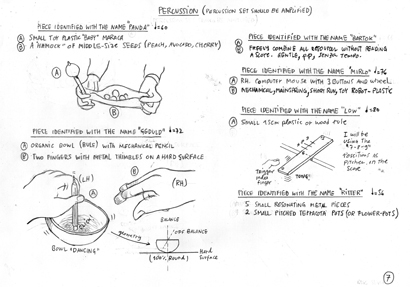 PERCUSSION (PERCUSSION SET SHOULD BE AMPLIFIED)
PIECE IDENTIFIED WITH THE NAME "PANDA" ♩=60
Ⓐ SMALL TOY PLASTIC "BABY" MARACA
Ⓑ A HAMMOCK OF MIDDLE-SIZE SEEDS (PEACH, AVOCADO, CHERRY)
Ⓐ
Ⓑ
PIECE IDENTIFIED WITH THE NAME ♩=72
Ⓐ ORGANIC BOWL (BULB) WITH MECHANICAL PENCIL
Ⓑ TWO FINGERS WITH METAL THIMBLES ON A HARD SURFACE
(LH)
Ⓐ
Ⓑ
(RH)
BOWL "DANCING"
geometry
BALANCE
OFF BALANCE
(100% ROUND)
Hard
Surface
PIECE IDENTIFIED WITH THE NAME "BARTOK"
Ⓐ
Ⓑ COMBINE ALL RESOURCES WITHOUT READING
A SCORE. GENTLE, pp, SENZA TEMPO.
PIECE IDENTIFIED WITH THE NAME "MIRLO" ♩=76
Ⓐ RH. COMPUTER MOUSE WITH 3 BUTTONS AND WHEEL
Ⓑ MECHANICAL, MAINSPRING, SHORT RUN, TOY ROBOT-PLASTIC
PIECE IDENTIFIED WITH THE NAME "LOW" ♩=84
Ⓐ SMALL 15cm PLASTIC OR WOOD RULE
I will be
using the
"7-8-9"
positions as
pitches, on the
score
Trigger
index
finger
PIECE IDENTIFIED WITH THE NAME ♩=56
5 SMALL RESONATING METAL PIECES
2 SMALL PITCHED TERRACOTA POTS (OR FLOWER-POTS)
7